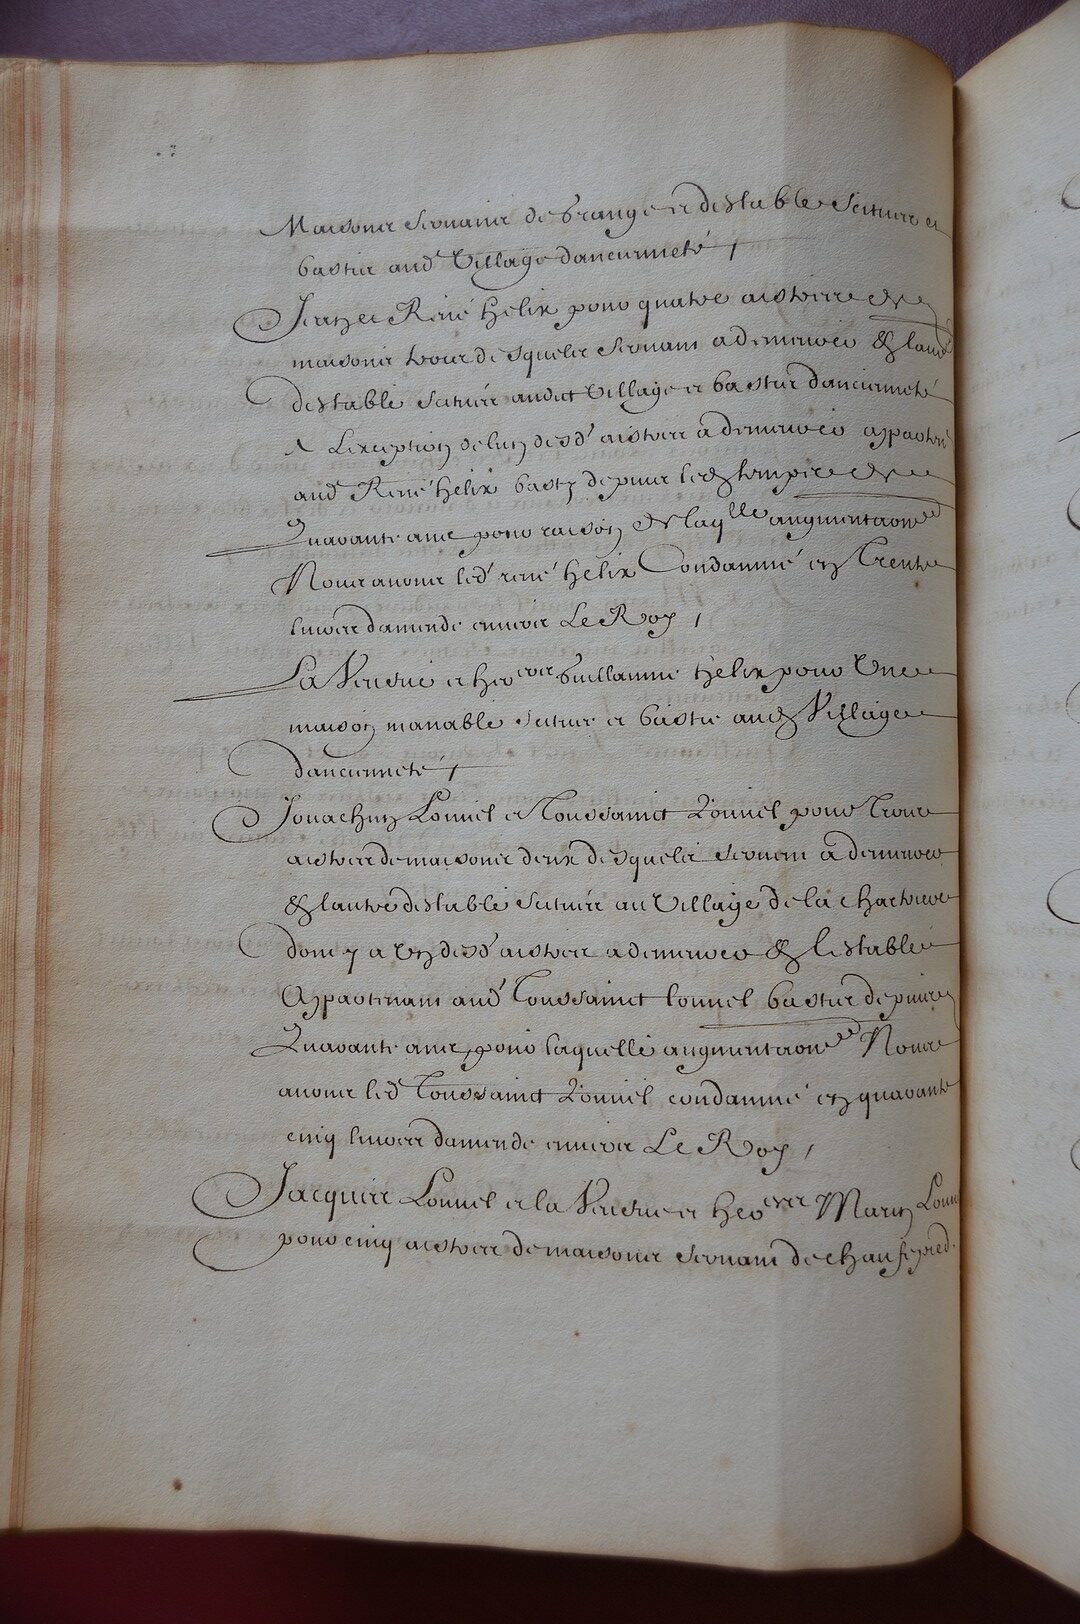 Maisons servans de grange et destable scituez et
bastis aud Village dancienneté /
Jean et René helix pour quatre aistres de
maisons trois desquels servans a demeurer & lautre
destable scituéz audict Village et bastis dancienneté
A Lexception de lun desd' aistres a demeurer appartent
aud René helix basty depuis led temps de
Quarante ans pour raison de laq.lle augmentaon
Nous avons led' rené helix Condamné en Trente
livres damende envers Le Roy /
La Veusve et her.ers Guillaume helix pour Une
maison manable scituée et bastie aud Village
dancienneté /
Jouachin Lonnel et Toussainct Lonnel pour Trois
aistres de maisons deux desquels servent a demeurer
& lautre destable scituéz au Village de la chartrere
dont y a Un desd' aistres a demeurer & Lestable
Appartenans aud' Toussainct lonnel bastis depuis
Quarante ans, pour laquelle augmentaon Nous
avons led' Toussainct Lonnel condamné en quarante
cinq livres damende envers Le Roy /
Jacques Lonnel et la Veusve et her.ers Marin Lonn
pour cinq aistres de maisons servans de chaufepied